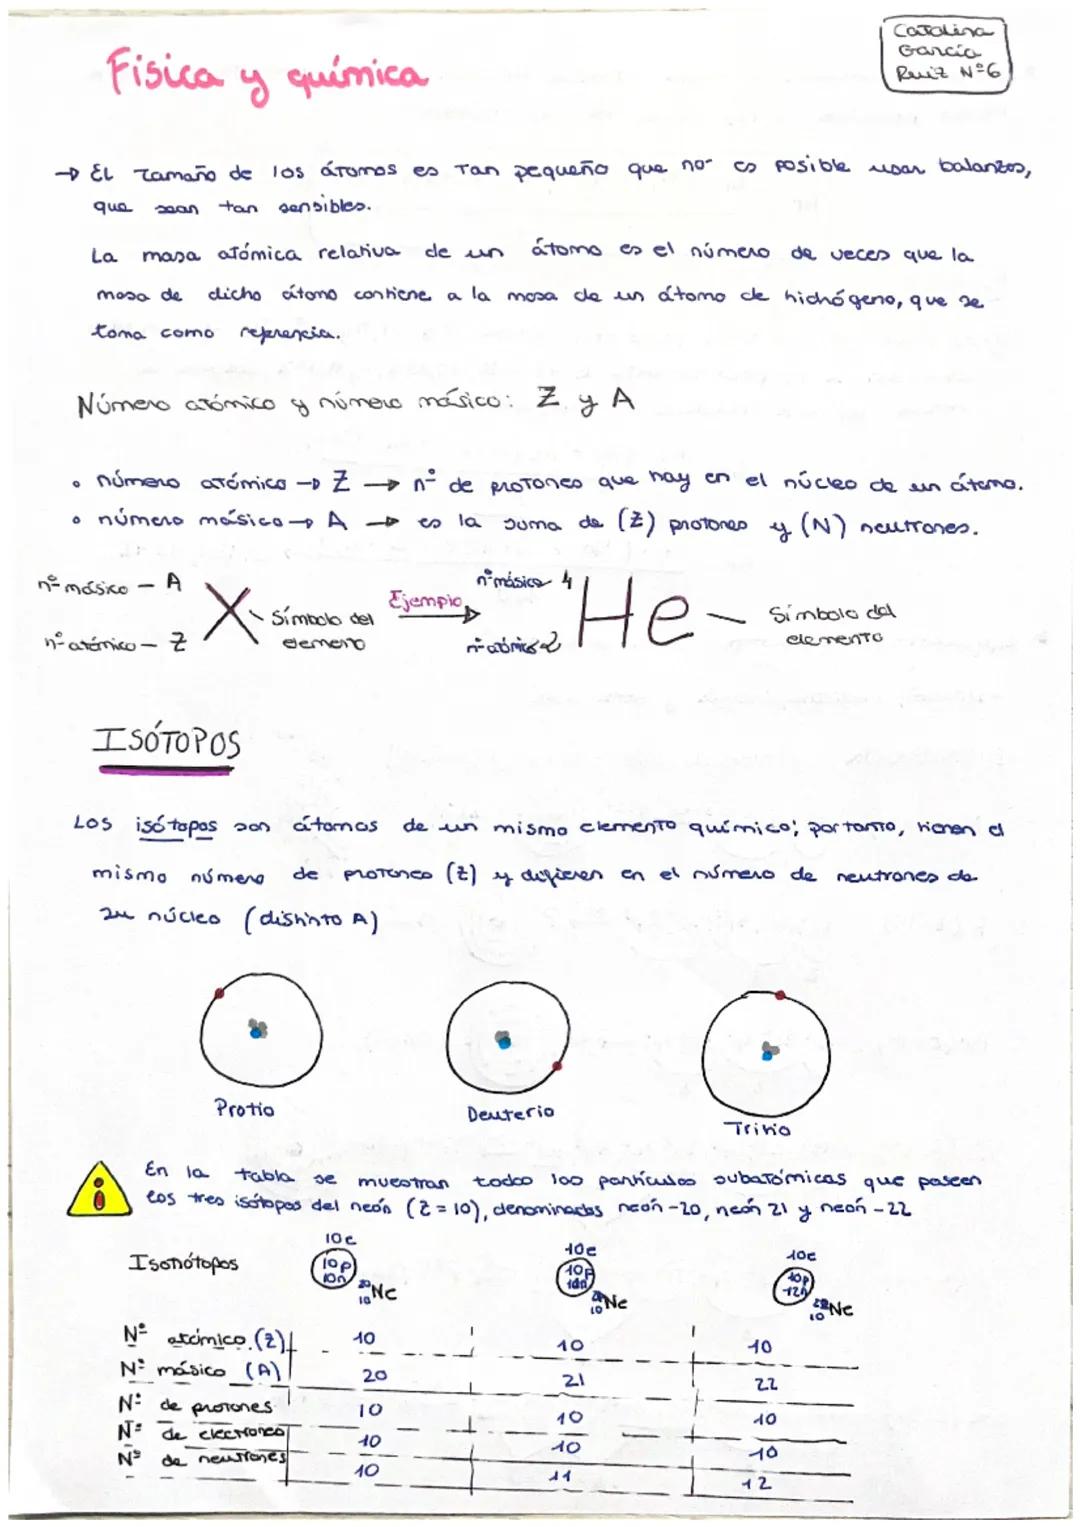 Catalina
García
Ruiz Nº6
Física y química
→ El tamaño de los átomos es tan pequeño que no es posible usar balanzas,
que sean tan sensibles.
La masa atómica relativa de un átomo es el número de veces que la
masa de dicho átomo contiene a la masa de un átomo de hidrógeno, que se
toma como referencia.
Número atómico y número másico: Z y A
• número atómico → Z → nº de protones que hay en el núcleo de un átomo.
• número másico → A → es la suma de (Z) protones y (N) neutrones.
nº másico - A
nº atómico - Z
X
Símbolo del
elemento
Ejemplo
nº másico 4
nº atómico 2
He
Símbolo del
elemento
ISÓTOPOS
Los isótopos son átomos de un mismo elemento químico; por tanto, tienen el
mismo número de protones (Z) y difieren en el número de neutrones de
su núcleo (distinto A)
Protio
Deuterio
Tritio
En la tabla se muestran todas las partículas subatómicas que poseen
los tres isótopos del neón (Z = 10), denominadas neón-20, neón 21 y neón-22
10e 10e 10e
Isotótopos
10p 10p 10p
10n 12n
20 10 Ne 10 Ne 22 10 Ne
Nº atómico (Z) 10 10 10
Nº másico (A) 20 21 22
Nº de protones 10 10 10
Nº de electrones 10 10 10
Nº de neutrones 10 11 12